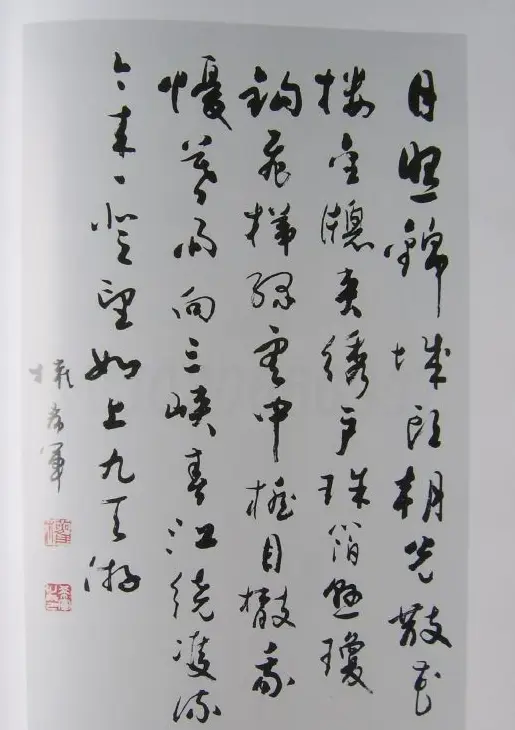 日照錦城頭朝光散花
樓金牕夾繡戶珠箔懸瓊
鉤飛梯綠雲中極目散我
憂暮雨向三峽春江繞雙流
今來一登望如上九天游
權希軍